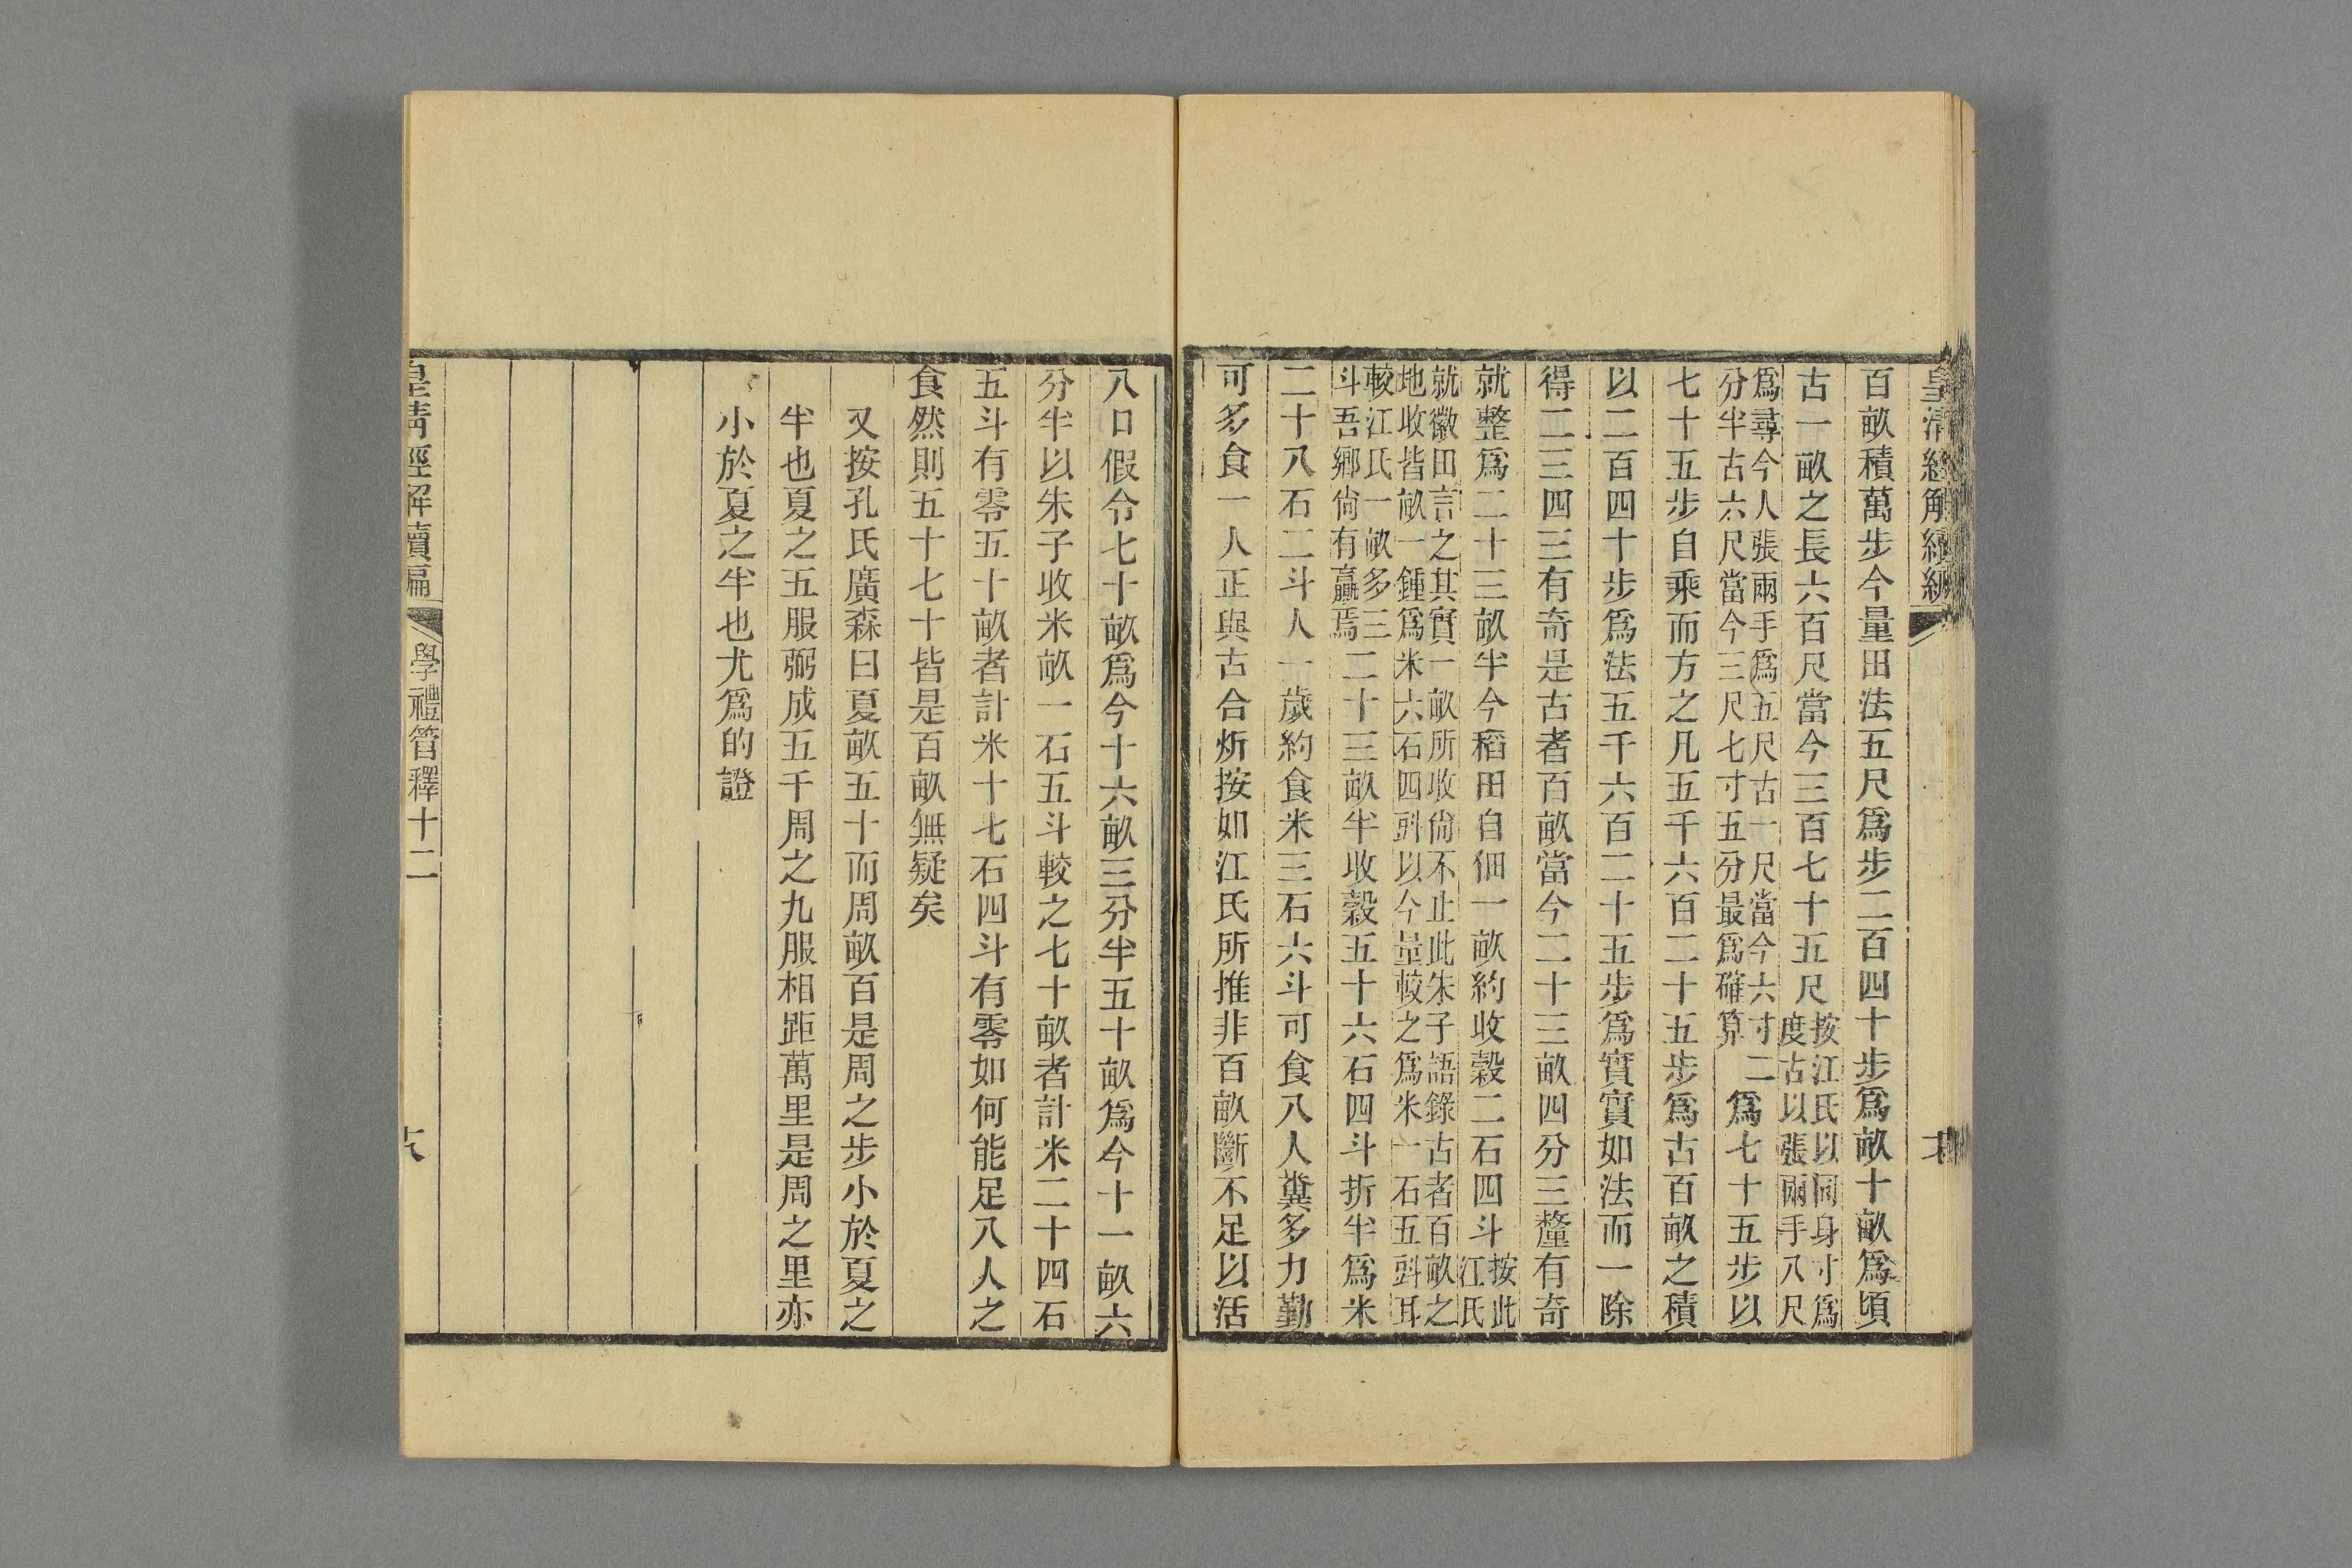 皇清經解續編
百畝積萬步今量田法五尺爲步二百四十步爲畝十畝爲頃
古一畝之長六百尺當今三百七十五尺按江氏以同身寸爲度古以張兩手八尺
爲尋今人張兩手爲五尺古一尺當今六寸二分半古六尺當今三尺七寸五分最爲確算爲七十五步以
七十五步自乘而方之凡五千六百二十五步爲古百畝之積
以二百四十步爲法五千六百二十五步爲實實如法而一除
得二三四三有奇是古者百畝當今二十三畝四分三釐有奇
就整爲二十三畝半今稻田自佃一畝約收穀二石四斗按此江氏
就徽田言之其實一畝所收尚不止此朱子語錄古者百畝之地收皆畝一鍾爲米六石四㪷以今量較之爲米一石五㪷耳
較江氏一畝多三斗吾鄉尚有贏焉二十三畝半收穀五十六石四斗折半爲米
二十八石二斗人一歲約食米三石六斗可食八人糞多力勤
可多食一人正與古合炘按如江氏所推非百畝斷不足以活
八口假令七十畝爲今十六畝三分半五十畝爲今十一畝六
分半以朱子收米畝一石五斗較之七十畝者計米二十四石
五斗有零五十畝者計米十七石四斗有零如何能足八人之
食然則五十七十皆是百畝無疑矣
又按孔氏廣森曰夏畝五十而周畝百是周之步小於夏之
半也夏之五服弼成五千周之九服相距萬里是周之里亦
小於夏之半也尤爲的證
皇清經解續編 學禮管釋十二 六